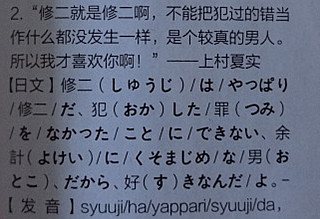 2. “修二就是修二啊，不能把犯过的错当
作什么都没发生一样，是个较真的男人。
所以我才喜欢你啊！”——上村夏实
【日文】修二（しゅうじ）/は/やっぱり
/修二/だ、犯（おか）した/罪（つみ）
/を/なかった/こと/に/できない、余
計（よけい）/に/くそまじめ/な/男（お
とこ）、だから、好（す）きなんだ/よ。–
【发音】syuuji/ha/yappari/syuuji/da,